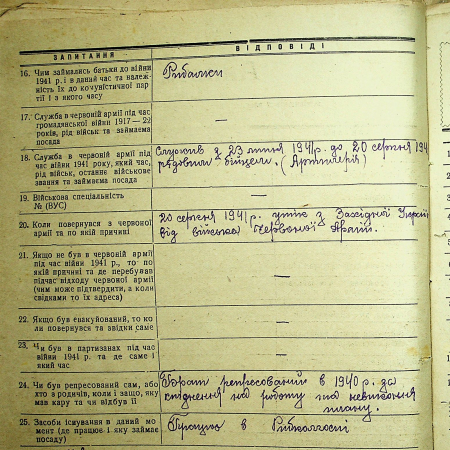 ЗАПИТАННЯ ВІДПОВІДІ
16. Чим займались батьки до війни
1941 р. і в даний час та належ-
ність їх до комуністичної пар-
тії і з якого часу
Рибалки
17. Служба в червоній армії під час
громадянської війни 1917—22
років, рід військ та займаєма
посада
—
18. Служба в червоній армії під
час війни 1941 року, який час,
рід військ, останнє військове
звання та займаєма посада
служив з 23 липня 1941р. до 20 серпня 194
рядовим бійцем. (Артилерія)
—
19. Військова спеціальність
№ (ВУС)
—
20. Коли повернувся з червоної
армії та по якій причині
20 серпня 1941р. утік з Західної
від війська Червоної Армії.
21. Якщо не був в червоній армії
під час війни 1941 р., то по
якій причині та де перебував
підчас відходу червоної армії
(чим може підтвердити, а коли
свідками то їх адреса)
—
22. Якщо був евакуйований, то ко-
ли повернувся та звідки саме
—
23. Чи був в партизанах під час
війни 1941 р. та де саме і
який час
—
24. Чи був репресований сам, або
хто з родичів, коли і защо, яку
мав кару та чи відбув її
Брат репресований в 1940 р. за
на роботу та невиконання
плану.
25. Засоби існування в даний мо-
мент (де працює і яку займає
посаду)
Працую в Рибколгоспі